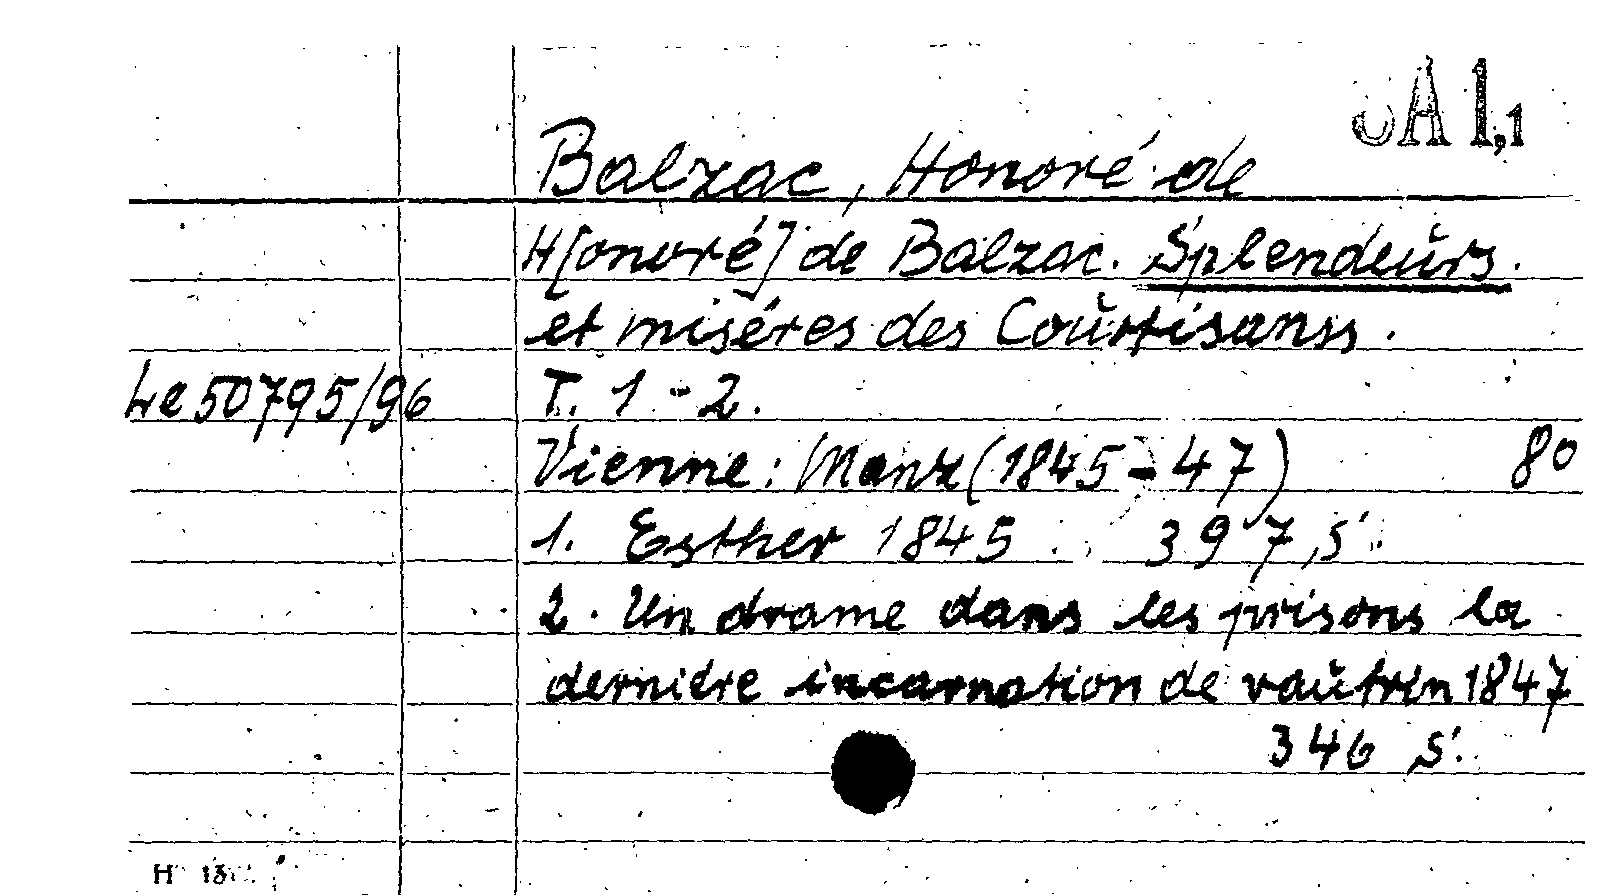 JA 1,1
Balzac, Honoré de
H[onoré] de Balzac. Splendeurs.
et miséres des Courtisanss.
Le 50795/96 T. 1-2.
Vienne: Manz (1845-47) 8°
1. Esther 1845 397 S.
2. Un drame dans les prisons la
derniere incarnation de vautrin 1847
346 S.